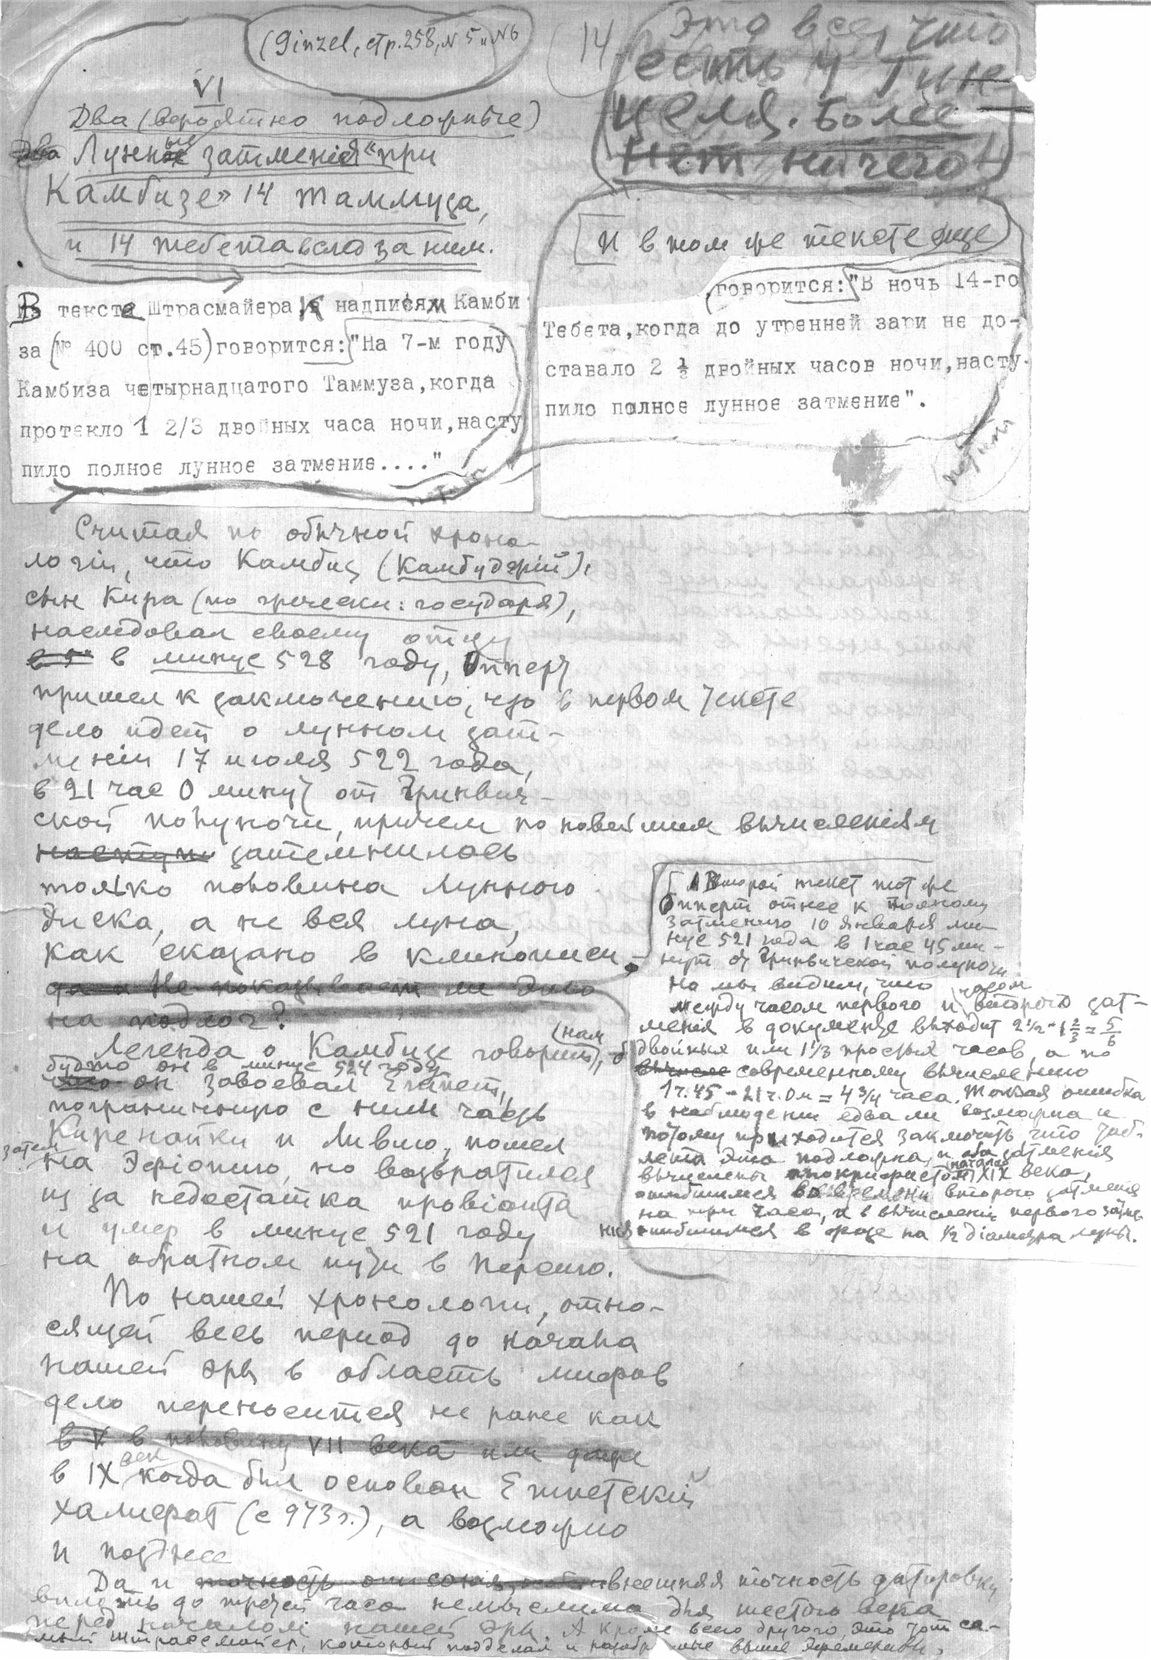 (Ginzel, стр. 258, № 5 и № 6
14
Это все, что
есть у Гин-
целя. Более
нет ничего!
VI
Два (вероятно подложные)
Лунные затмения "при
Камбизе" 14 Таммуза,
и 14 Тебета вслед за ним.
В тексте Штрасмайера надписям Камби
за (№ 400 ст.45) говорится: "На 7-м году
Камбиза четырнадцатого Таммуза, когда
протекло 1 2/3 двойных часа ночи, насту
пило полное лунное затмение...."
И в том же тексте еще
говорится: "В ночь 14-го
Тебета, когда до утренней зари не до-
ставало 2 ½ двойных часов ночи, насту-
пило полное лунное затмение".
петит
Считая по обычной хроно-
логии, что Камбиз (Камбуджий),
сын Кира (по гречески: государя),
наследовал своему отцу
в минус 528 году, Опперт
пришел к заключению, что в первом тексте
дело идет о лунном зат-
мении 17 июля 522 года,
в 21 час 0 минут от Гринвич-
ской полуночи, причем по новейшим вычислениям
затемнилось
только половина лунного
диска, а не вся луна,
как сказано в клинописи.
да и не показывает ли это
на подлог?
Второй текст тот же
Опперт отнес к полному
затмению 10 января ми-
нус 521 года в 1 час 45 ми-
нут от Гринвичской полуночи
Но мы видим, что
между часом первого и часом второго зат-
мения в документе выходит 2½ - 1⅔ = 5/6
двойных или 1⅓ простых часов, а по
современному вычислению
1ч.45 - 21ч.0м = 4¾ часа. Такая ошибка
в наблюдении едва ли возможна и
потому приходится заключить что таб-
лета эта подложна, и оба затмения
вычислены апокрифистом начала XIX века,
ошибшимся во времени второго затмения
на три часа, а в вычислении первого затме-
ния ошибшимся в фазе на ½ диаметра луны.
Легенда о Камбизе говорит нам,
будто он в минус 524 году
завоевал Египет,
пограничную с ним часть
Киренаики и Ливию, пошел
затем
на Эфиопию, но возвратился
из за недостатка провианта
и умер в минус 521 году
на обратном пути в Персию.
По нашей хронологии, отно-
сящей весь период до начала
нашей эры в область мифов
дело переносится не ранее как
в IX век когда был основан Египетский
халифат (с 973 г.), а возможно
и позднее
Да и внешняя точность датировки
вплоть до третей часа немыслима для шестого века
перед началом нашей эры. А кроме всего другого, это тот са-
мый Штрассмайер, который подделал и выше эфемериды.